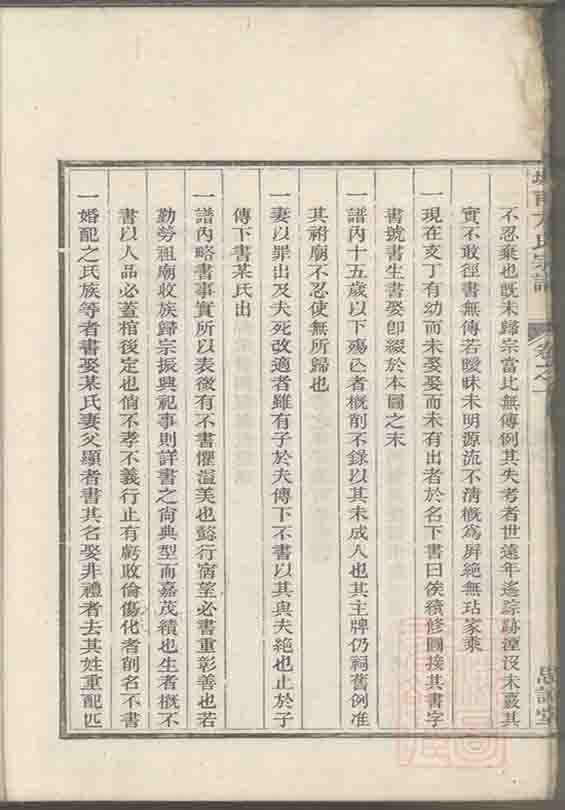 方氏宗譜
卷之一
思記堂
不忍棄也既未歸宗當比無傳例其失考者世遠年遙踪跡湮没未覈其
實不敢徑書無傳若曖昧未明源流不清概為屏絶無玷家乘
一現在支丁有幼而未娶娶而未有出者於名下書曰俟續修圖接其書字
書號書生書娶卽綴於本圖之末
一譜內十五歲以下殤亾者概削不錄以其未成人也其主牌仍祠舊例准
其祔廟不忍使無所歸也
一妻以罪出及夫死改適者雖有子於夫傳下不書以其與夫絶也止於子
傳下書某氏出
一譜內略書事實所以表微有不書懼溢美也懿行宿望必書重彰善也若
勤勞祖廟收族歸宗振興祀事則詳書之尙典型而嘉茂績也生者概不
書以人品必蓋棺後定也倘不孝不義行止有虧敗倫傷化者削名不書
一婚配之氏族等者書娶某氏妻父顯者書其名娶非禮者去其姓重配匹